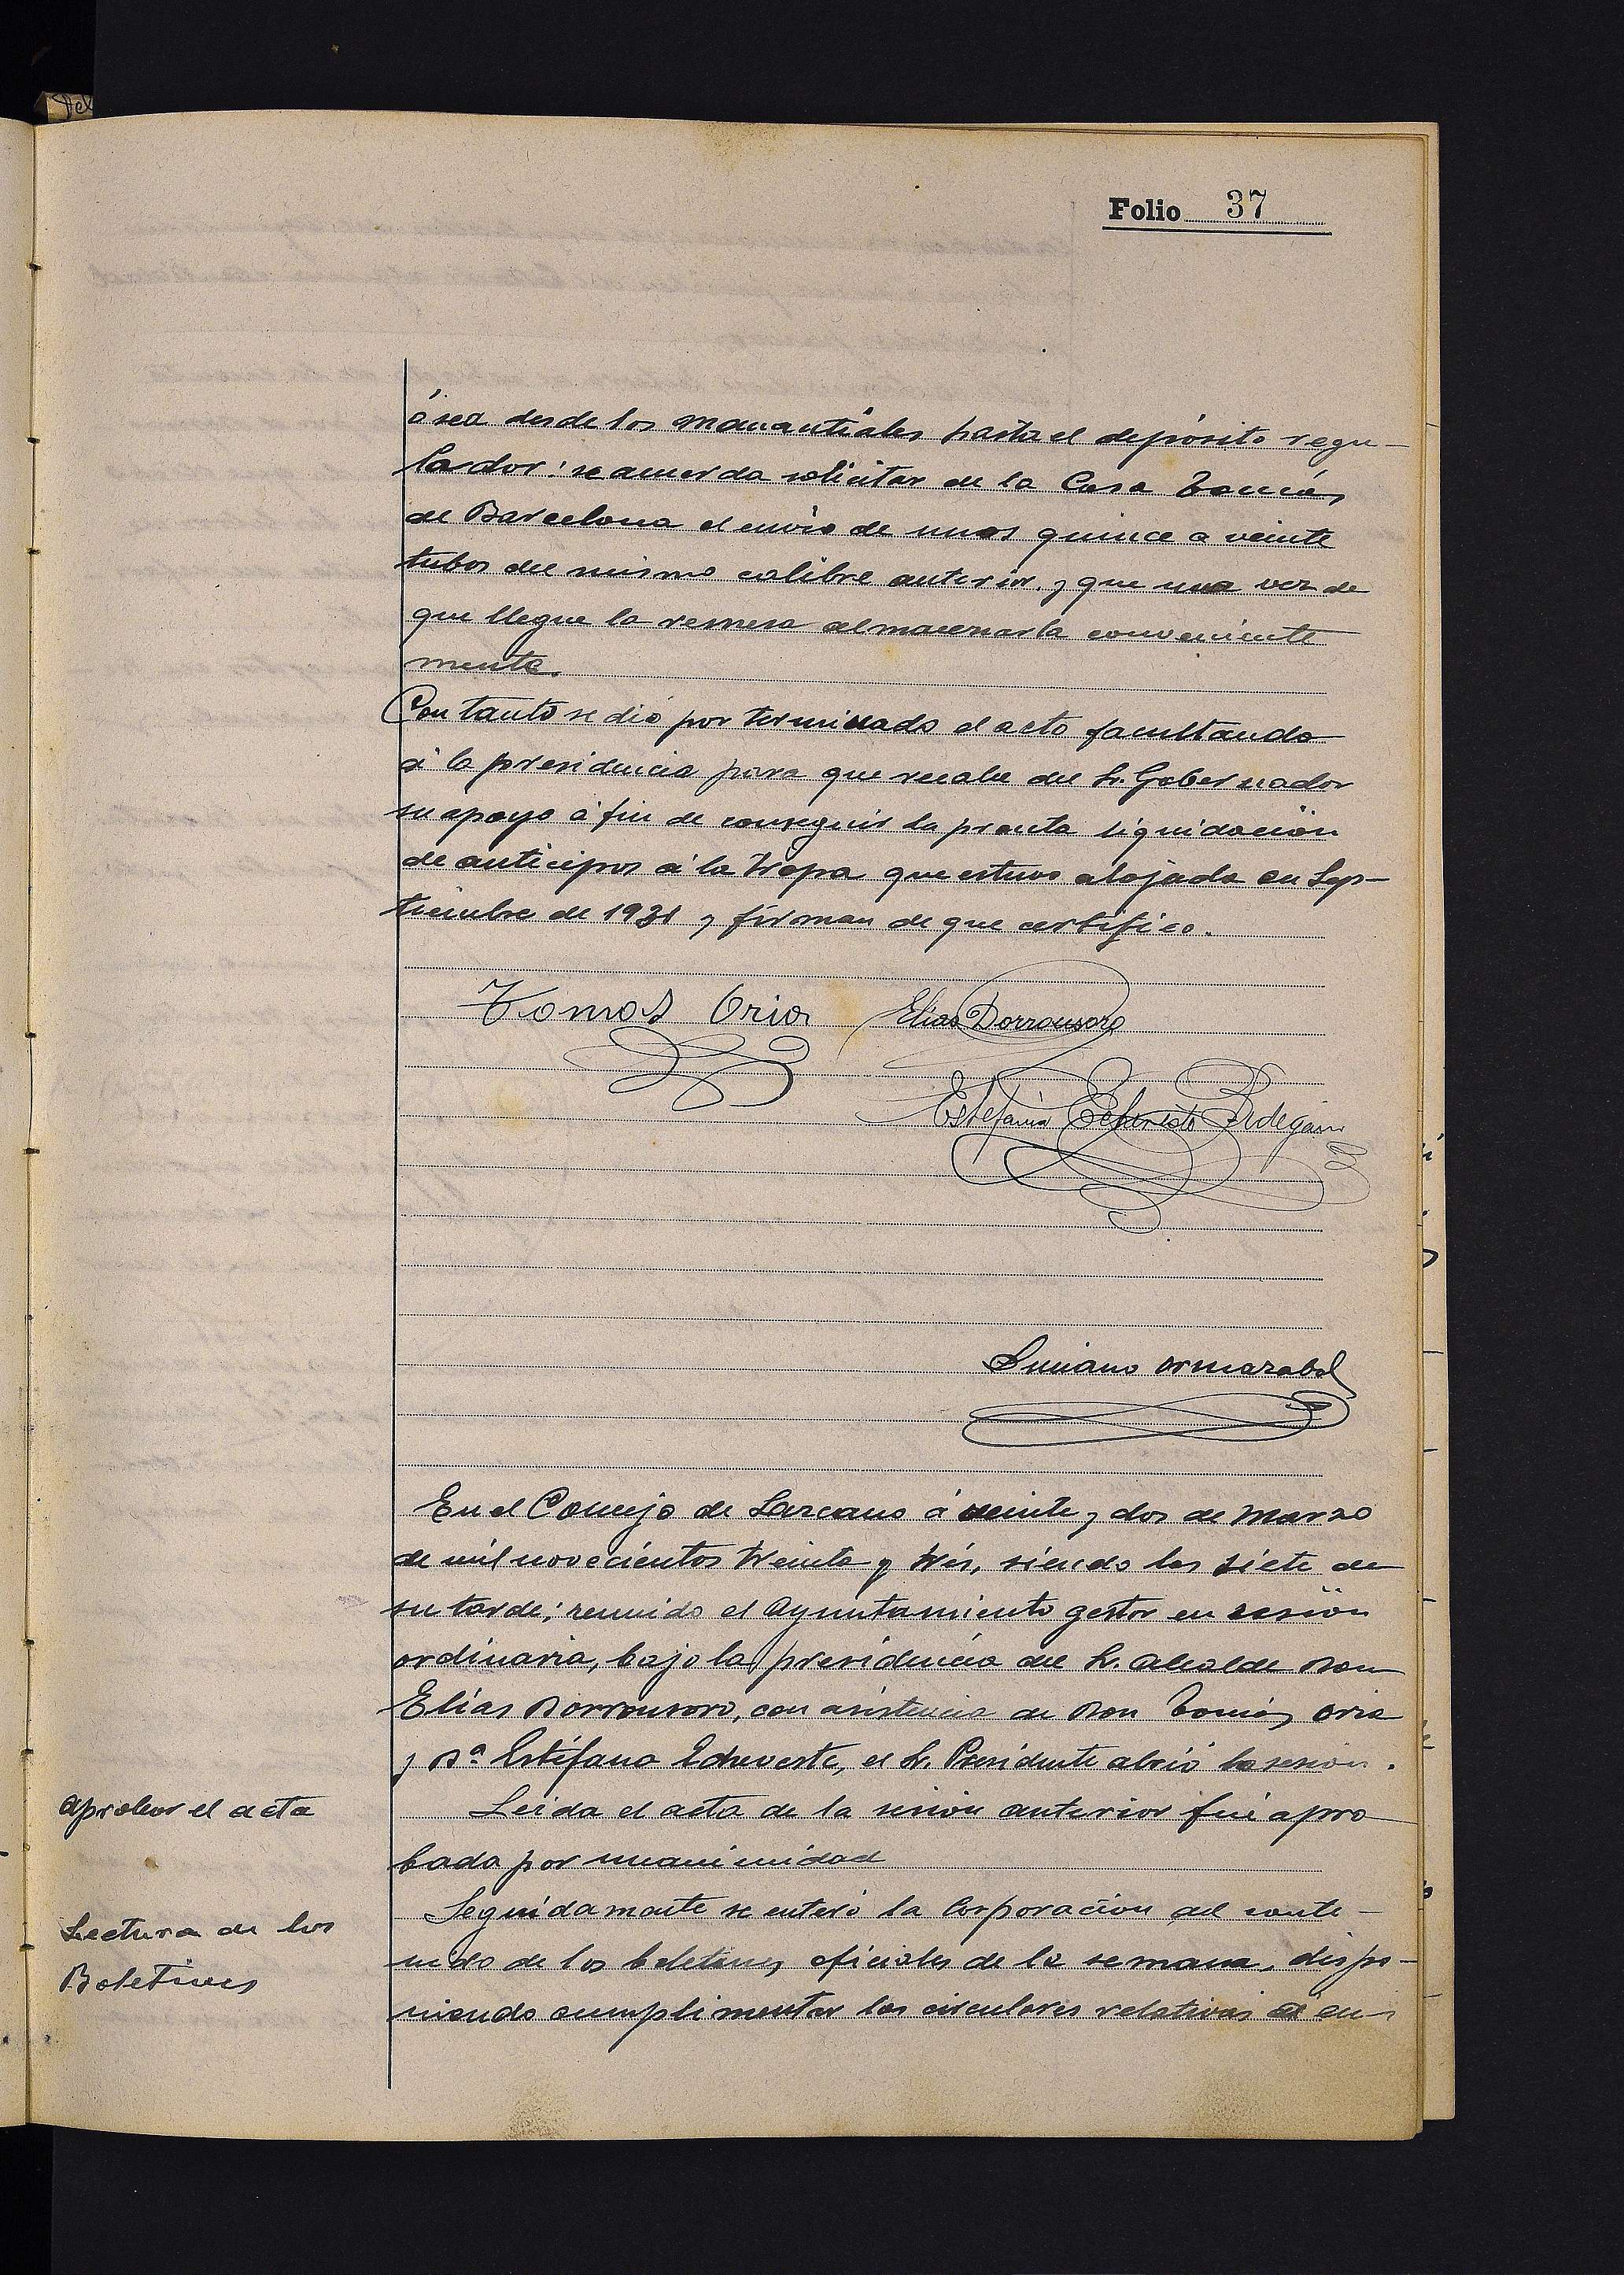 Folio 37
ó sea desde los manantiales hasta el depósito regu-
lador: se acuerda solicitar de la Casa Tomás
de Barcelona el envio de unos quince a veinte
tubos del mismo calibre anterior, y que una vez de
que llegue la remesa almacenarla conveniente
mente.
Con tanto se dió por terminado el acto facultando
á la presidencia para que recabe del Sr. Gobernador
su apoyo á fin de conseguir la pronta liquidación
de anticipos á la tropa que estuvo alojada en Sep-
tiembre de 1931 y firman de que certifico.
Tomas Oria Elias Dorronsoro
Estefania Echeveste
Luciano Ormazabal
En el Concejo de Lazcano á veinte y dos de Marzo
de mil novecientos treinta y trés, siendo las siete de
su tarde; reunido el Ayuntamiento gestor en sesión
ordinaria, bajo la presidencia del Sr. Alcalde Don
Elías Dorronsoro, con asistencia de Don Tomás Oria
y Dª Estéfana Echeveste, el Sr. Presidente abrió la sesión.
aprobar el acta
Leida el acta de la sesión anterior fué apro
bada por unanimidad
Lectura de los
Boletines
Seguidamente se enteró la Corporación del conte-
nido de los boletines oficiales de la semana, dispo-
niendo cumplimentar las circulares relativas á